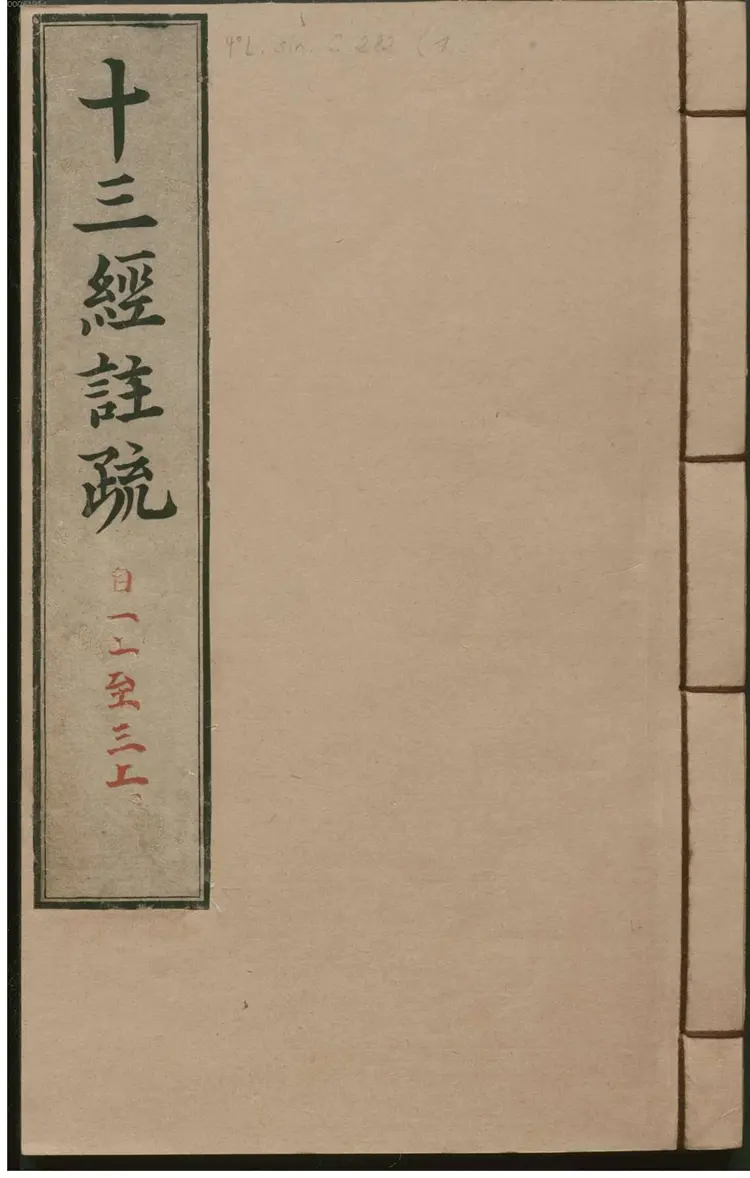 十三經註疏
自一上至三上
4° L. sin. C 282 (1.